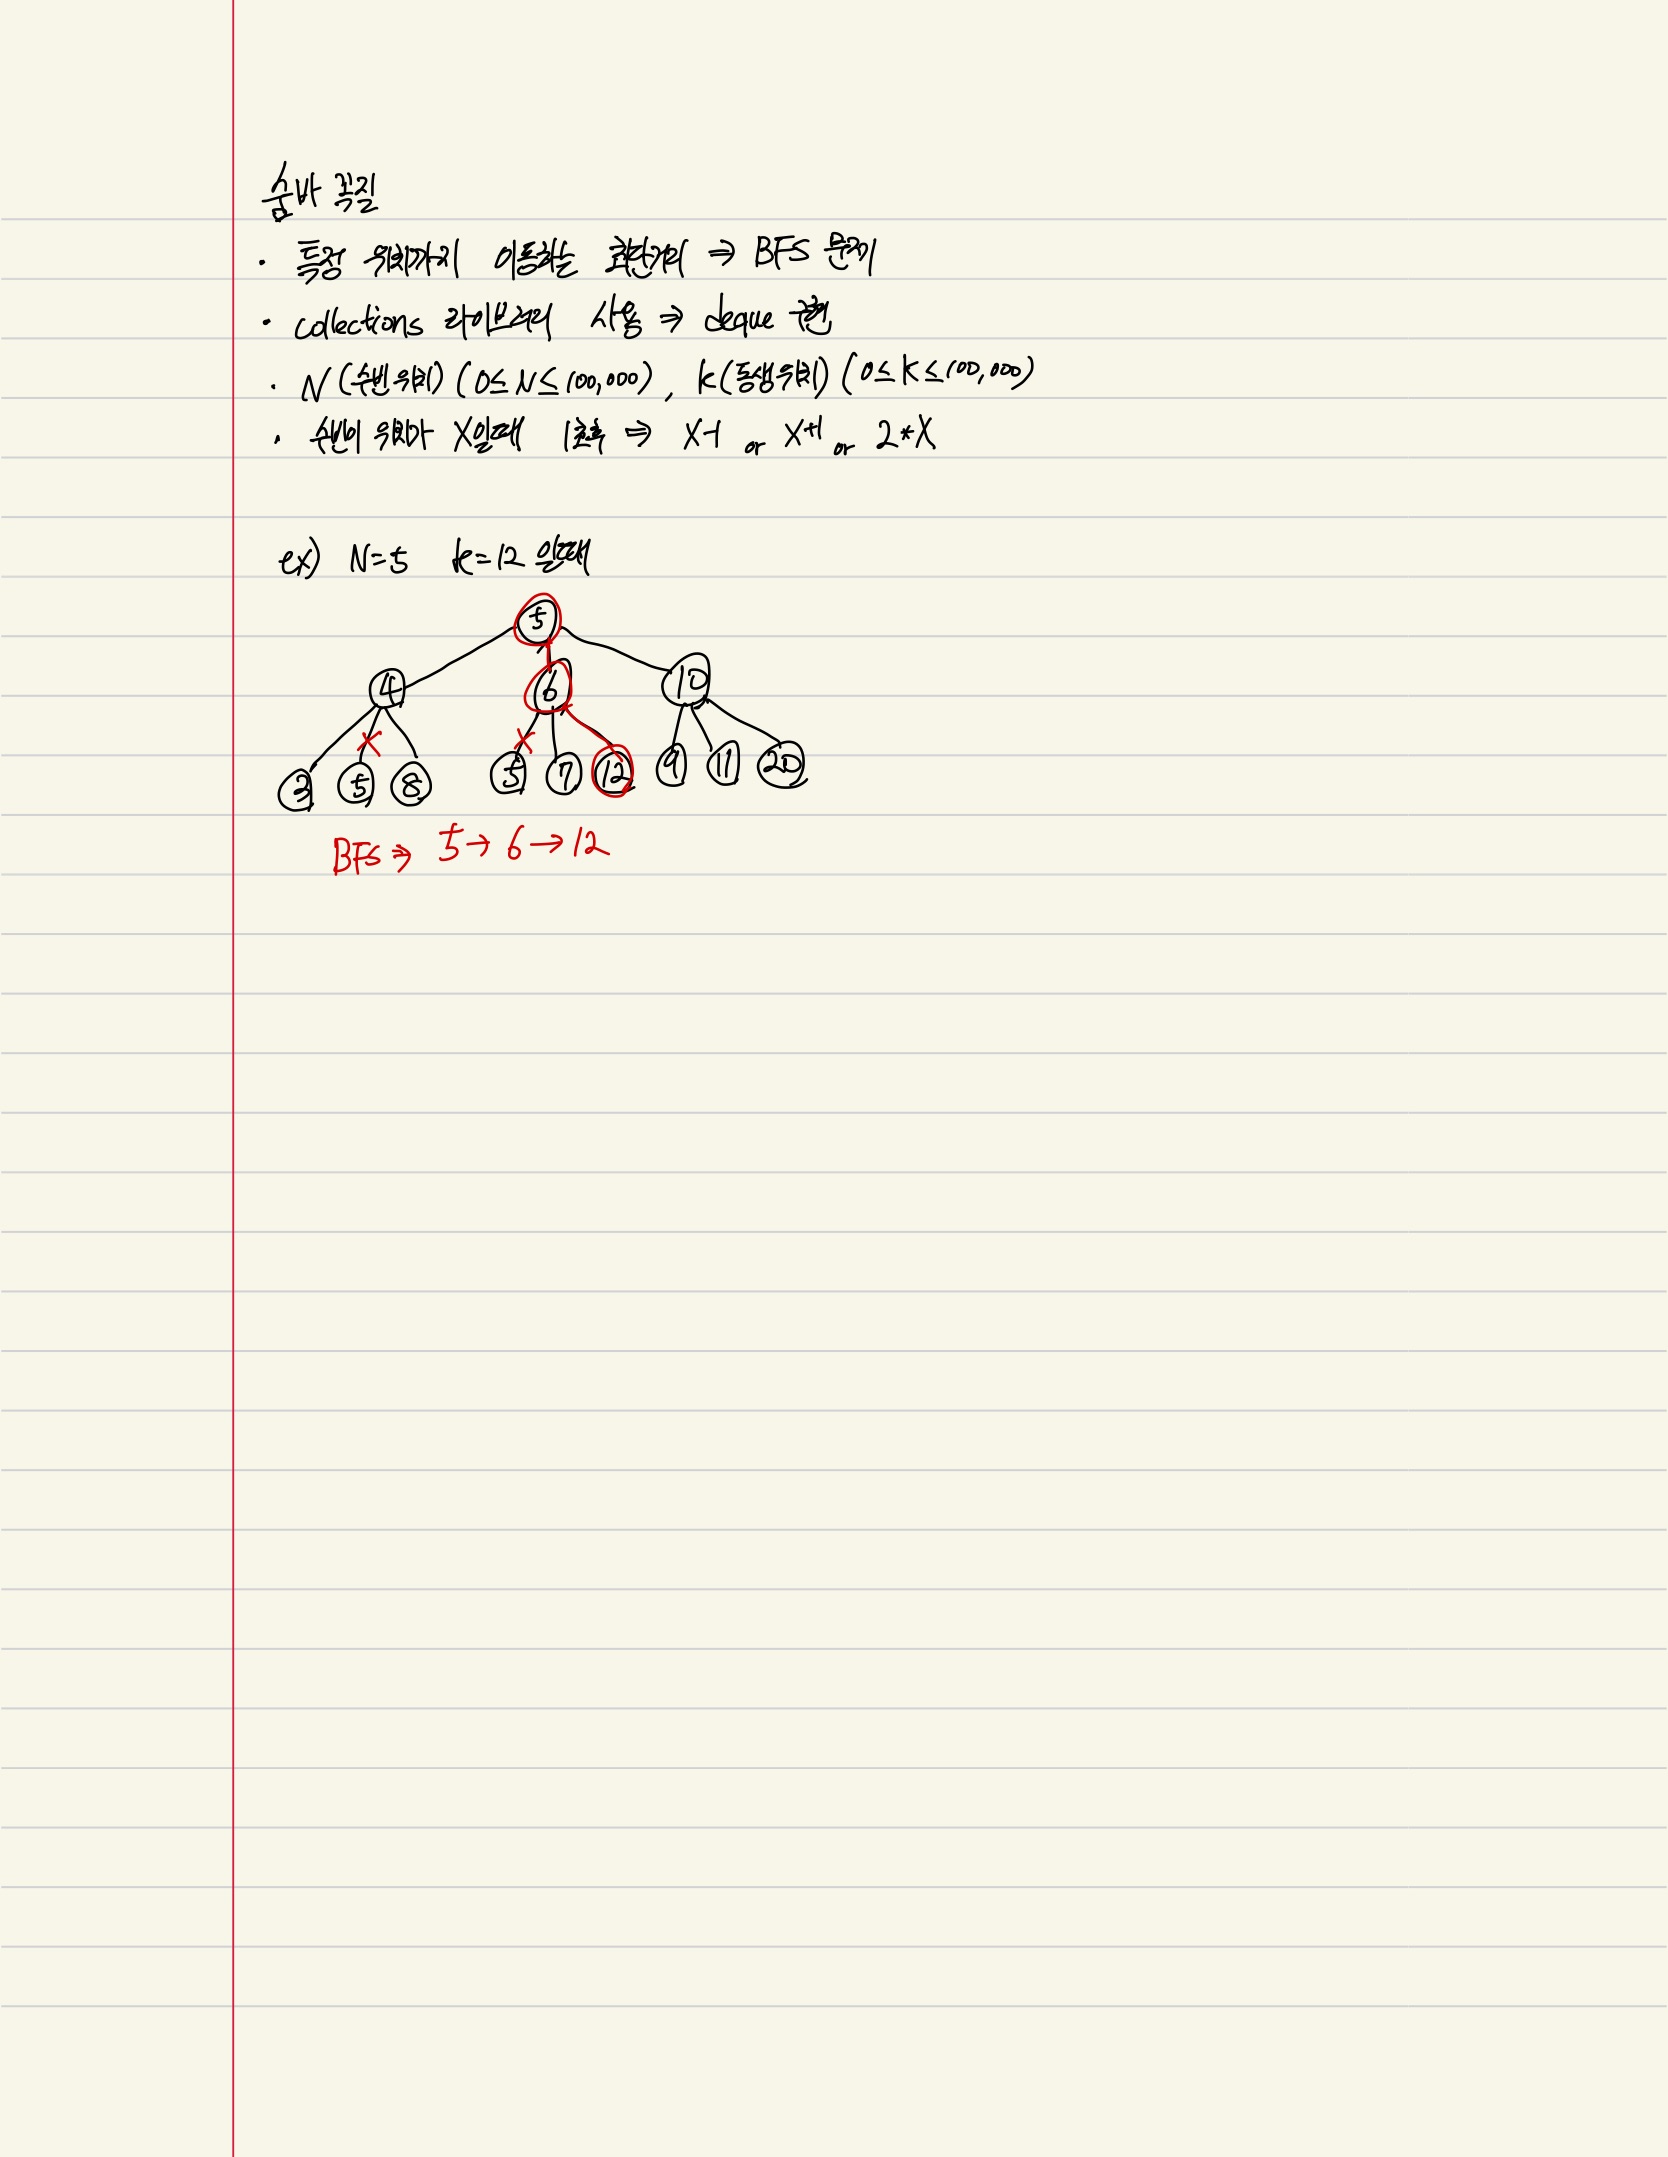 숨바 꼭질
· 특정 위치까지 이동하는 최단거리 ⇒ BFS 문제
· collections 라이브러리 사용 ⇒ deque 구현
· N (수빈 위치) (0≤ N ≤ 100,000) , K (동생위치) (0≤ K ≤ 100,000)
· 수빈이 위치가 X일때 1초후 ⇒ X-1 or X+1 or 2*X
ex) N=5 k=12 일때
5
4 6 10
3 5 8 5 7 12 9 11 20
BFS ⇒ 5 → 6 → 12